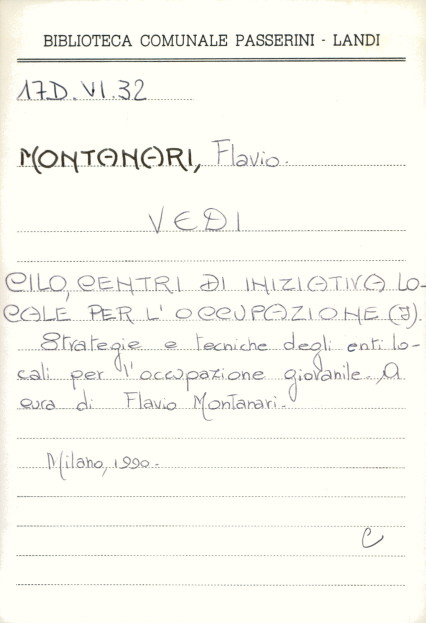 BIBLIOTECA COMUNALE PASSERINI - LANDI
17D.VI.32
MONTANARI, Flavio.
VEDI
CILO, CENTRI DI INIZIATIVA LO-
CALE PER L'OCCUPAZIONE (I).
Strategie e tecniche degli enti lo-
cali per l'occupazione giovanile. A
cura di Flavio Montanari.
Milano, 1990.
C